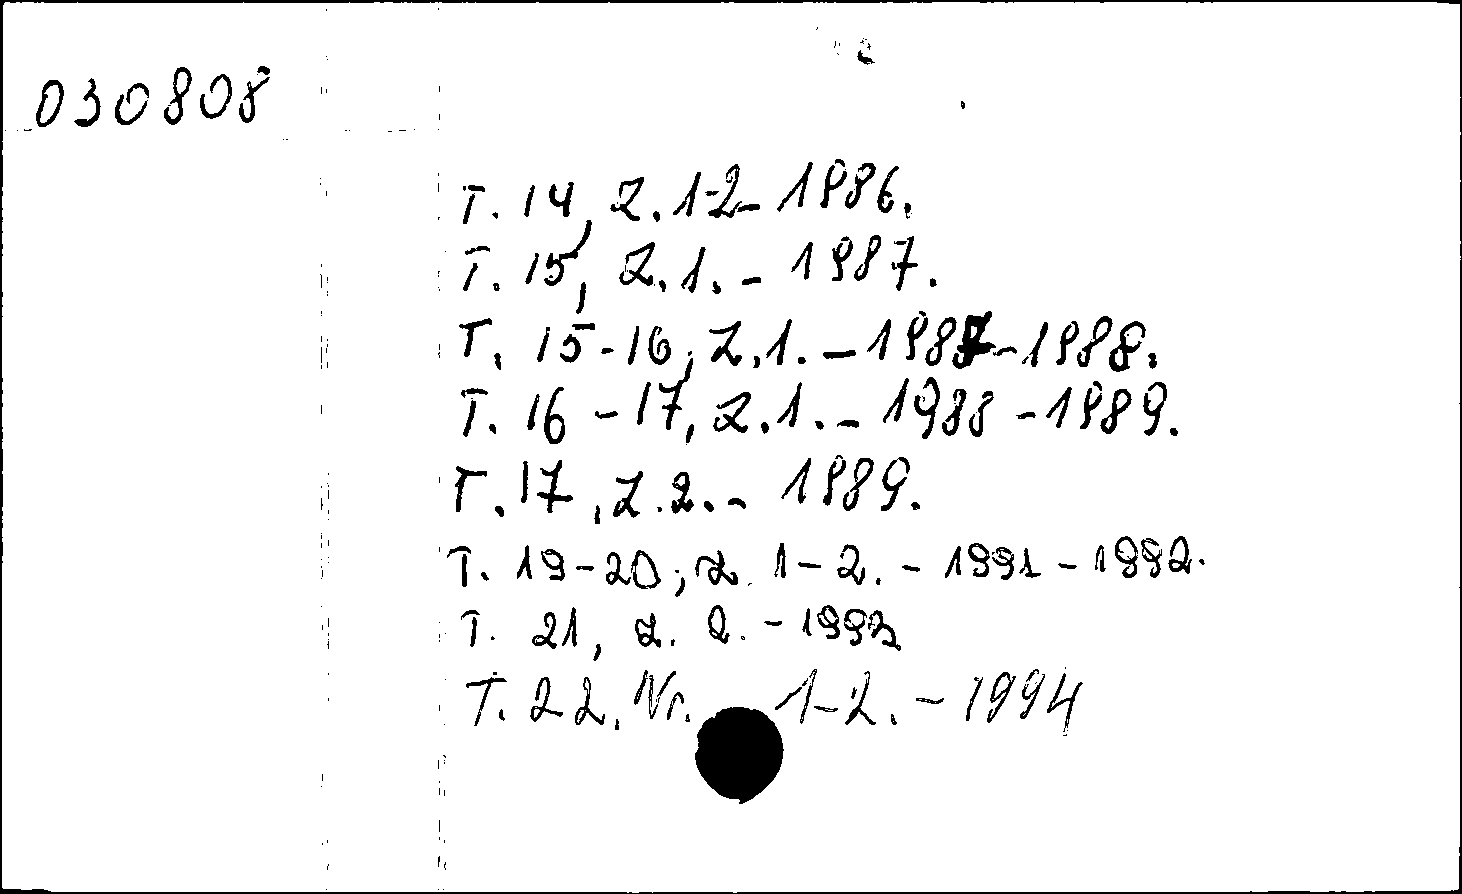 030808
T. 14, z. 1-2 - 1986.
T. 15, z. 1. - 1987.
T. 15-16, z. 1. - 1987-1988.
T. 16-17, z. 1. - 1988-1989.
T. 17, z. 2. - 1989.
T. 19-20, z. 1-2. - 1991-1992.
T. 21, z. 2. - 1993
T. 22. Nr. 1-2. - 1994